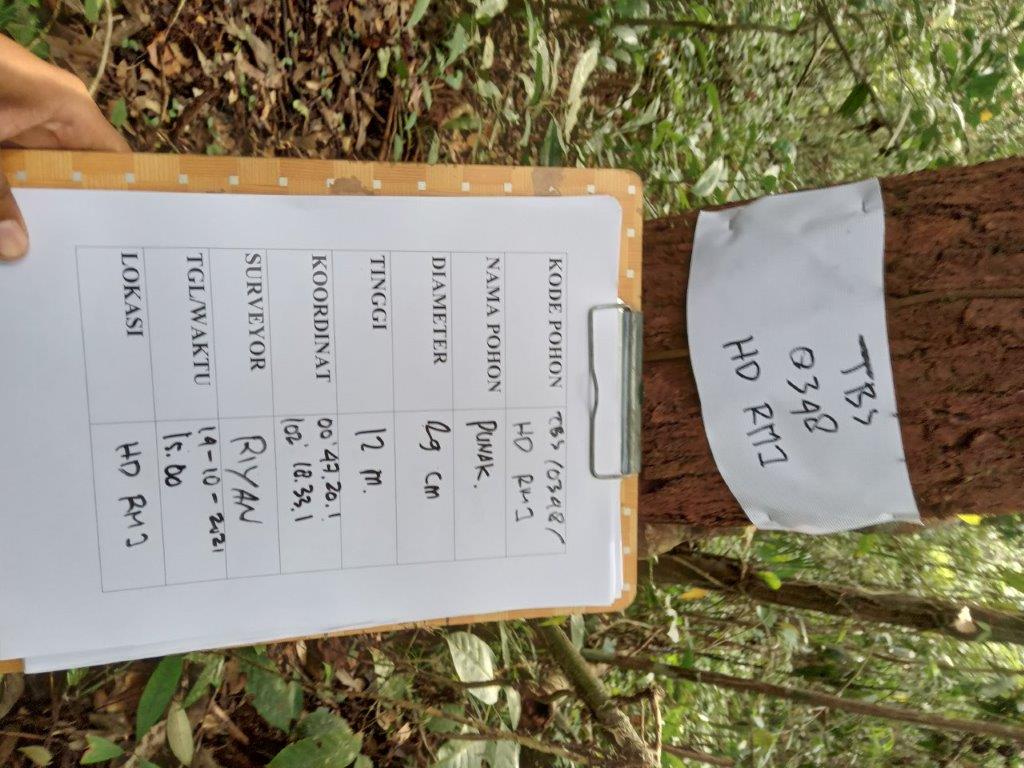 TBS
0348
HD RMJ
KODE POHON TBS/0348/
HD RMJ
NAMA POHON PUNAK.
DIAMETER 29 cm
TINGGI 12 m.
KOORDINAT 00°47.20.1
102° 18.33.1
SURVEYOR RIYAN
TGL/WAKTU 14-10-2021
15.00
LOKASI HD RMJ